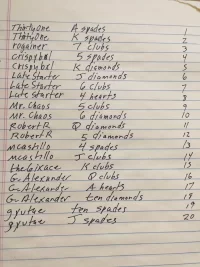 ThirtyOne A spades 1
ThirtyOne K spades 2
rogainer 7 clubs 3
Crispybxl 5 spades 4
Crispybxl K diamonds 5
LateStarter J diamonds 6
Late Starter 6 clubs 7
Late Starter 4 hearts 8
Mr. Chaos 5 clubs 9
Mr. Chaos 6 diamonds 10
Robert R Q diamonds 11
Robert R 5 diamonds 12
mcashllo 4 spades 13
mcashllo J clubs 14
K clubs 15
G. Alexander Q clubs 16
G. Alexander A hearts 17
G. Alexander ten diamonds 18
gyutae ten spades 19
gyutae J spades 20